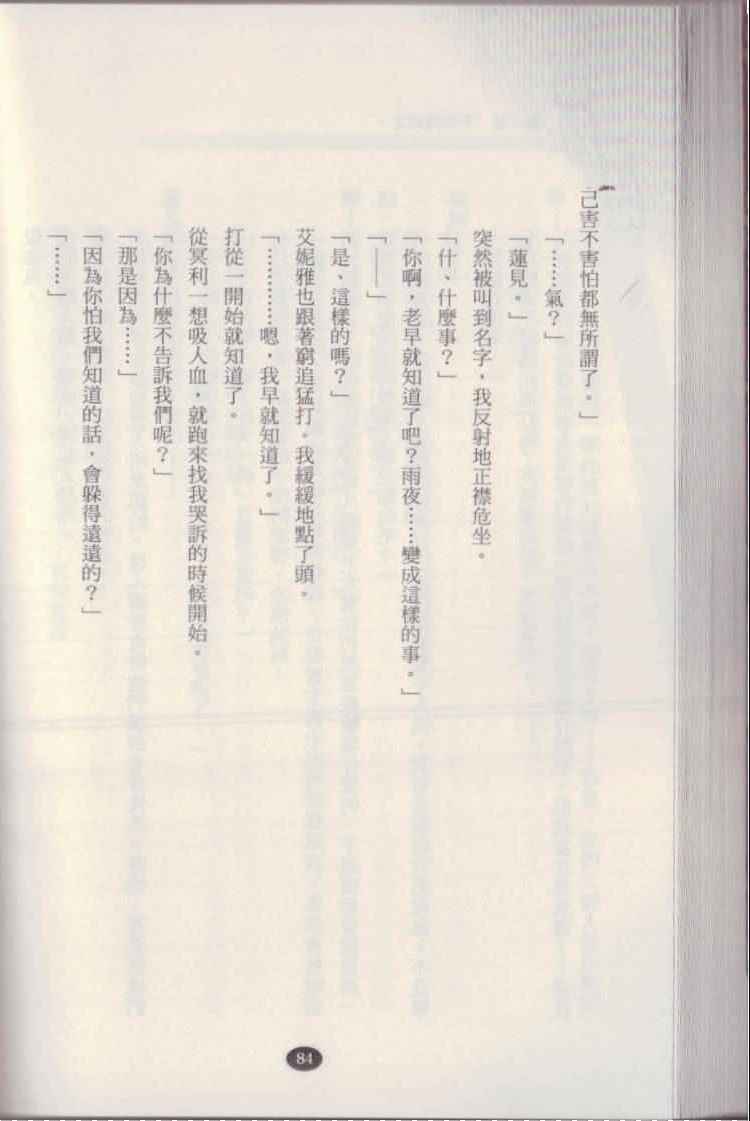 己害不害怕都無所謂了。」
「……氣？」
「蓮見。」
突然被叫到名字，我反射地正襟危坐。
「什、什麼事？」
「你啊，老早就知道了吧？雨夜……變成這樣的事。」
「——」
「是、這樣的嗎？」
艾妮雅也跟著窮追猛打。我緩緩地點了頭。
「…………嗯，我早就知道了。」
打從一開始就知道了。
從冥利一想吸人血，就跑來找我哭訴的時候開始。
「你為什麼不告訴我們呢？」
「那是因為……」
「因為你怕我們知道的話，會躲得遠遠的？」
「……」
84